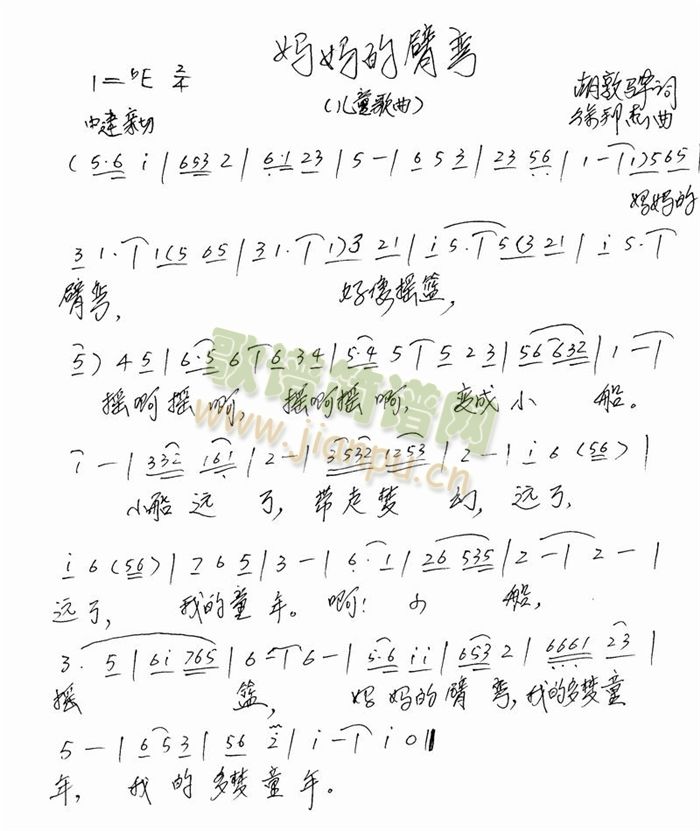 妈妈的臂弯
1=♭E 2/4
(儿童歌曲)
中速亲切
胡敦骅词
徐邦杰曲
(5·6 i | 653 2 | 6·1 23 | 5 - | 6 5 3 | 23 56 | 1 - | 1)565 |
妈妈的
3 1· | 1(5 65 | 31· | 1)3 21 | i 5· | 5(3 21 | i 5· |
臂弯, 好像摇篮,
5) 45 | 6·5 6 | 6 34 | 5·4 5 | 5 2 3 | 56 632 | 1 - |
摇啊摇啊, 摇啊摇啊, 变成小 船。
歌谱简谱网
www.jianpu.cn
1 - | 332 161 | 2 - | 3532 1253 | 2 - | i 6 (56) |
小船远了, 带走梦幻, 远了,
i 6 (56) | 7 6 5 | 3 - | 6· 1 | 26 535 | 2 - | 2 - |
远了, 我的童年。啊! 小 船,
3· 5 | 6i 765 | 6 - | 6 - | 5·6 ii | 653 2 | 6661 23 |
摇 篮, 妈妈的臂弯,我的多梦童
5 - | 6 5 3 | 56 2 | i - | i 0 ‖
年, 我的多梦童年。